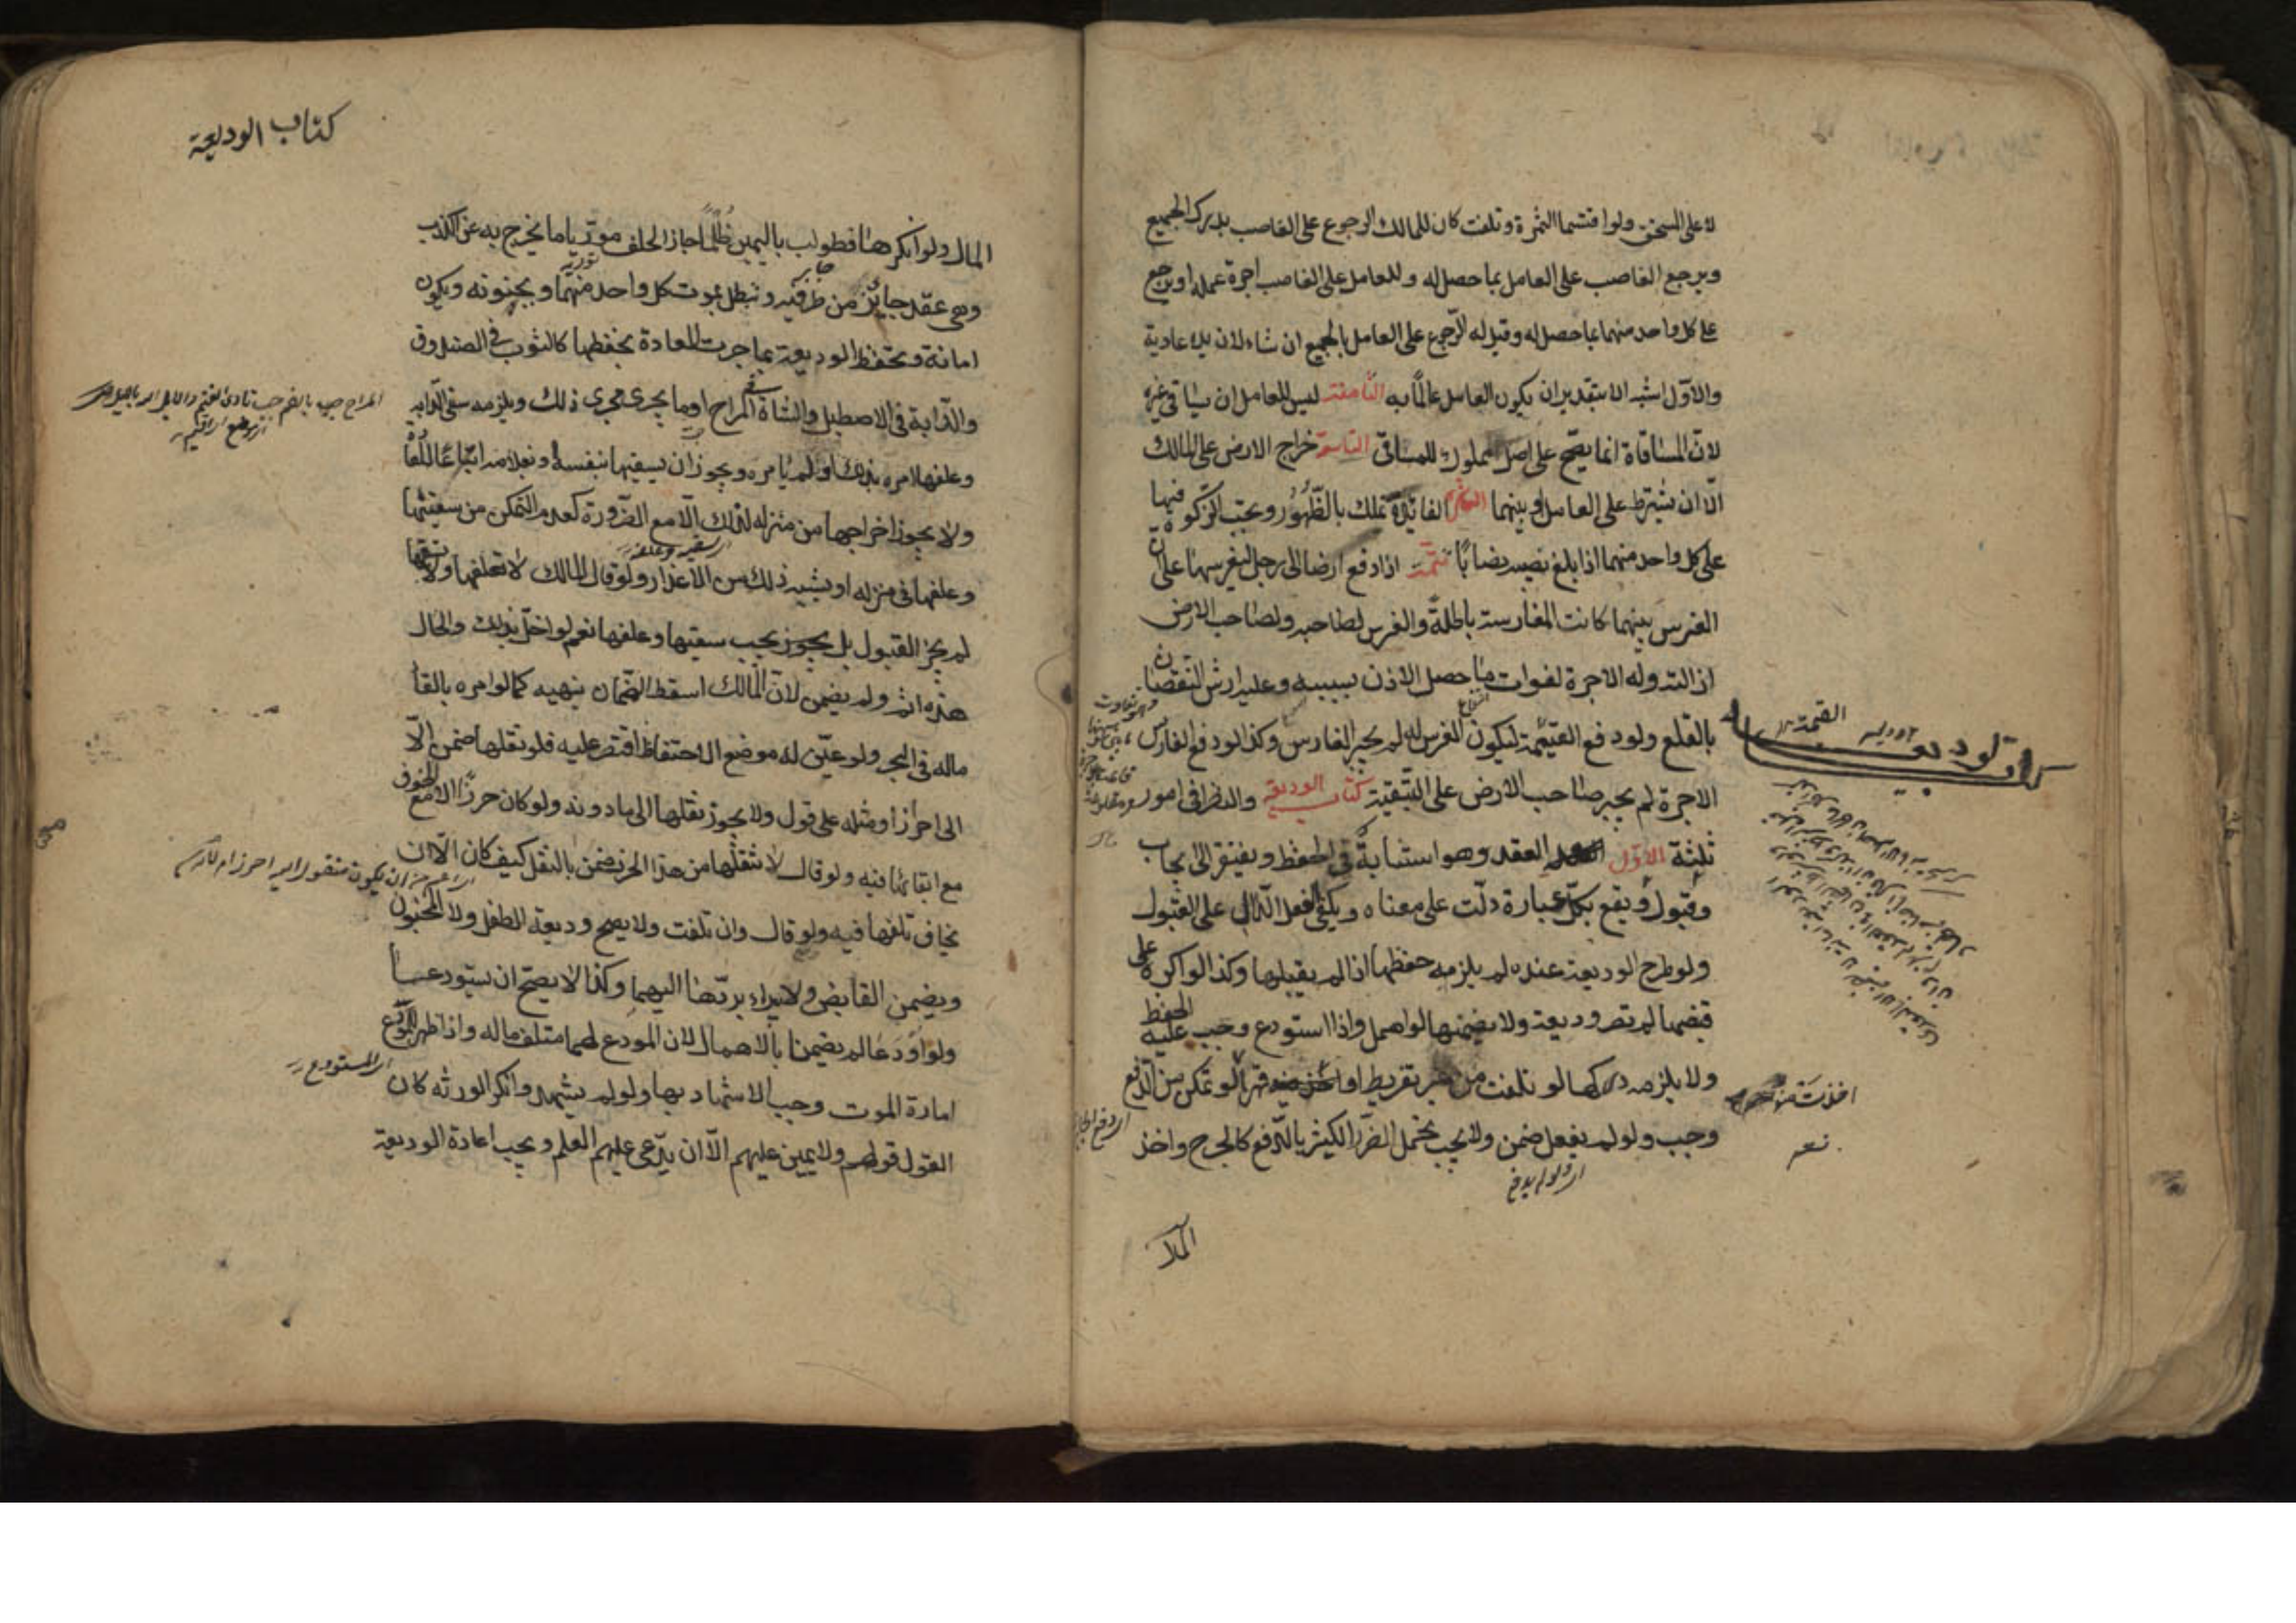 لا على المستحق ولو اقتسما الثمرة وتلفت كان للمالك الرجوع على الغاصب بدرك الجميع
ويرجع الغاصب على العامل بما حصل له وللعامل على الغاصب اجرة عمله او يرجع
على كل واحد منهما بما حصل له وقيل له الرجوع على العامل بالجميع ان شاء لان يده عادية
والاول اشبه الا بتقدير ان يكون العامل عالما به الثامنة ليس للعامل ان يساقي غيره
لان المساقاة انما يصح على اصل مملوك للمساقي التاسعة خراج الارض على المالك
الا ان يشترط على العامل او بينهما العاشرة الفائدة تملك بالظهور وتجب الزكوة فيها
على كل واحد منهما اذا بلغ نصيبه نصابا تتمة اذا دفع ارضا الى رجل ليغرسها على ان
الغرس بينهما كانت المغارسة باطلة والغرس لصاحبه ولصاحب الارض
ازالته وله الاجرة لفوات ما حصل الاذن بسببه وعليه ارش النقصان
بالقلع ولو دفع القيمة ليكون الغرس له لم يجبر الغارس وكذا لو دفع الغارس
الاجرة لم يجبر صاحب الارض على التبقية كتاب الوديعة والنظر في امور
ثلثة الاول العقد وهو استنابة في الحفظ ويفتقر الى ايجاب
وقبول ويقع بكل عبارة دلت على معناه ويكفي الفعل الدال على القبول
ولو طرح الوديعة عنده لم يلزمه حفظها اذا لم يقبلها وكذا لو اكره على
قبضها لم تصر وديعة ولا يضمنها لو اهمل واذا استودع وجب عليه الحفظ
ولا يلزمه دركها لو تلفت من غير تفريط او قهرا لو تمكن من الدفع
وجب ولو لم يفعل ضمن ولا يجب تحمل الضرر الكثير بالدفع كالجرح واخذ
اخذت منه
كتاب الوديعة
المال
كتاب الوديعة
المال ولو انكرها فطولب باليمين ظلما جاز الحلف موريا ما يخرج به عن الكذب
وهي عقد جائز من طرفيه وتبطل بموت كل واحد منهما وبجنونه ويكون
امانة وتحفظ الوديعة بما جرت العادة بحفظها كالثوب في الصندوق
والدابة في الاصطبل والشاة في المراح او ما يجري مجرى ذلك ويلزمه سقي الدابة
وعلفها امره بذلك او لم يامره ويجوز ان يسقيها بنفسه وبغلامه اتباعا للعادة
ولا يجوز اخراجها من منزله لذلك الا مع الضرورة كعدم التمكن من سقيها
وعلفها في منزله او شبيه ذلك من الاعذار ولو قال المالك لا تعلفها ولا تسقها
لم يجز القبول بل يجب سقيها وعلفها نعم لو اخل بذلك والحال
هذه اثم ولم يضمن لان المالك اسقط الضمان بنهيه كما لو امره بالقاء
ماله في البحر ولو عين له موضع الاحتفاظ اقتصر عليه فلو نقلها ضمن الا
الى احرز او مثله على قول ولا يجوز نقلها الى ما دونه ولو كان حرزا الا مع الخوف
مع ابقائها فيه ولو قال لا تنقلها من هذا الحرز ضمن بالنقل كيف كان الا ان
يخاف تلفها فيه ولو قال وان تلفت ولا يصح وديعة الطفل ولا المجنون
ويضمن القابض ولا يبراء بردها اليهما وكذا لا يصح ان يستودعا
ولو اودعا لم يضمنا بالاهمال لان المودع لهما متلف ماله واذا ظهر للمودع
امارة الموت وجب الاشهاد بها ولو لم يشهد وانكر الورثة كان
القول قولهم ولا يمين عليهم الا ان يدعى عليهم العلم ويجب اعادة الوديعة